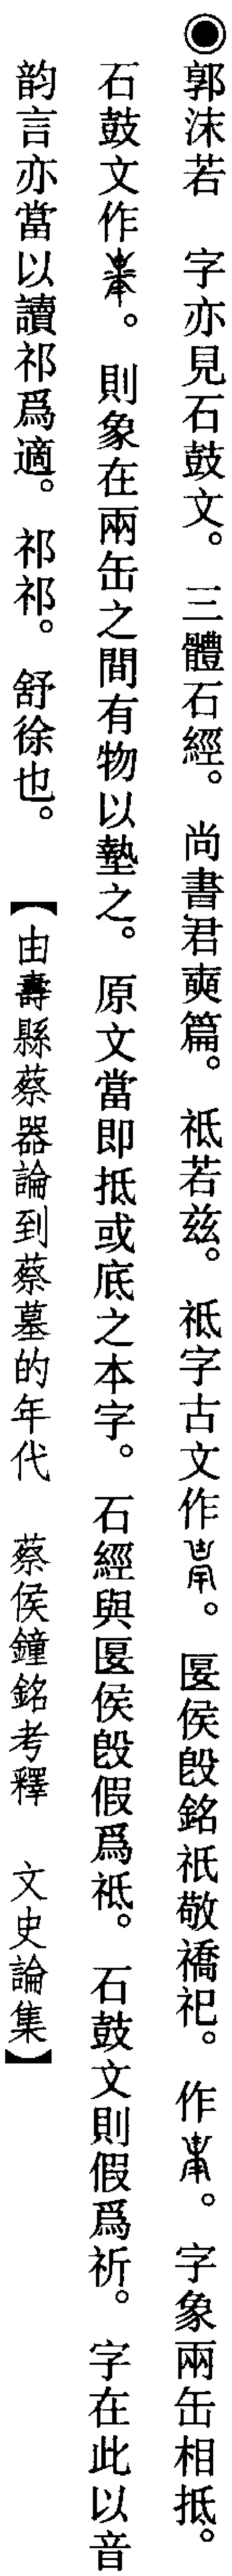 ◉郭沫若　字亦見石鼓文。三體石經。尚書君奭篇。祗若茲。祗字古文作。匽侯𣪘銘祇敬禱祀。作。字象兩缶相抵。
石鼓文作。則象在兩缶之間有物以墊之。原文當即抵或底之本字。石經與匽侯𣪘假爲祗。石鼓文則假爲祈。字在此以音
韵言亦當以讀祁爲適。祁祁。舒徐也。【由壽縣蔡器論到蔡墓的年代　蔡侯鐘銘考釋　文史論集】